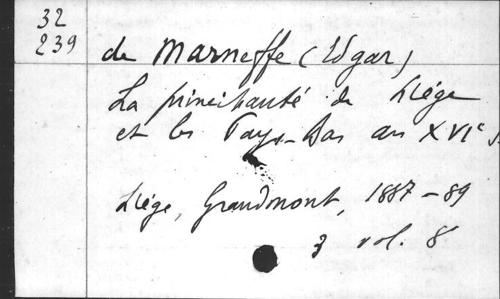 32
239
de Marneffe (Edgar)
La principauté de Liége
et les Pays-Bas au XVIe s.
Liége, Grandmont, 1887-89
3 vol. 8°